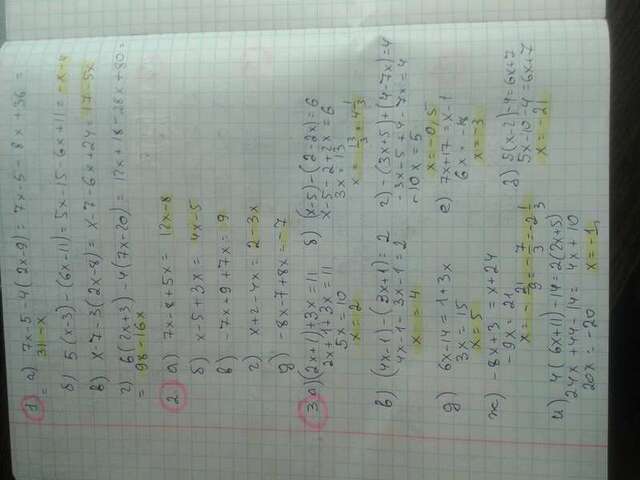 1 а) 7x-5-4(2x-9) = 7x-5-8x+36 =
= 31-x
б) 5(x-3)-(6x-11) = 5x-15-6x+11 = -x-4
в) x-7-3(2x-8) = x-7-6x+24 = 17-5x
г) 6(2x+3)-4(7x-20) = 12x+18-28x+80 =
= 98-16x
2. а) 7x-8+5x = 12x-8
б) x-5+3x = 4x-5
в) -7x+9+7x = 9
г) x+2-4x = 2-3x
д) -8x-7+8x = -7
3. а) (2x+1)+3x=11 б) (x-5)-(2-2x)=6
2x+1+3x=11 x-5-2+2x=6
5x=10 3x=13
x=2 x=13/3=4 1/3
в) (4x-1)-(3x+1)=2 г) -(3x+5)+(4-7x)=4
4x-1-3x-1=2 -3x-5+4-7x=4
x=4 -10x=5
x=-0,5
д) 6x-14=1+3x е) 7x+17=x-1
3x=15 6x=-18
x=5 x=-3
ж) -8x+3=x+24 з) 5(x-2)-4=6x+7
-9x=21 5x-10-4=6x+7
x=-21/9=-7/3=-2 1/3 x=-21
и) 4(6x+11)-14=2(2x+5)
24x+44-14=4x+10
20x=-20
x=-1,